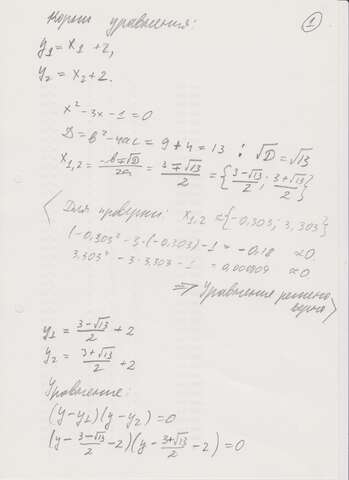 1
Корни уравнения:
y₁ = x₁ + 2,
y₂ = x₂ + 2.
x² - 3x - 1 = 0
D = b² - 4ac = 9 + 4 = 13 ; √D = √13
x₁,₂ = (-b ∓ √D)/2a = (3 ∓ √13)/2 = {(3-√13)/2 ; (3+√13)/2}
Для проверки: x₁,₂ ≈ {-0,303; 3,303}
(-0,303² - 3·(-0,303) - 1 = -0,18 ≈ 0.
3,303² - 3·3,303 - 1 = 0,000809 ≈ 0
⇒ Уравнение решено верно
y₁ = (3-√13)/2 + 2
y₂ = (3+√13)/2 + 2
Уравнение:
(y - y₁)(y - y₂) = 0
(y - (3-√13)/2 - 2)(y - (3+√13)/2 - 2) = 0